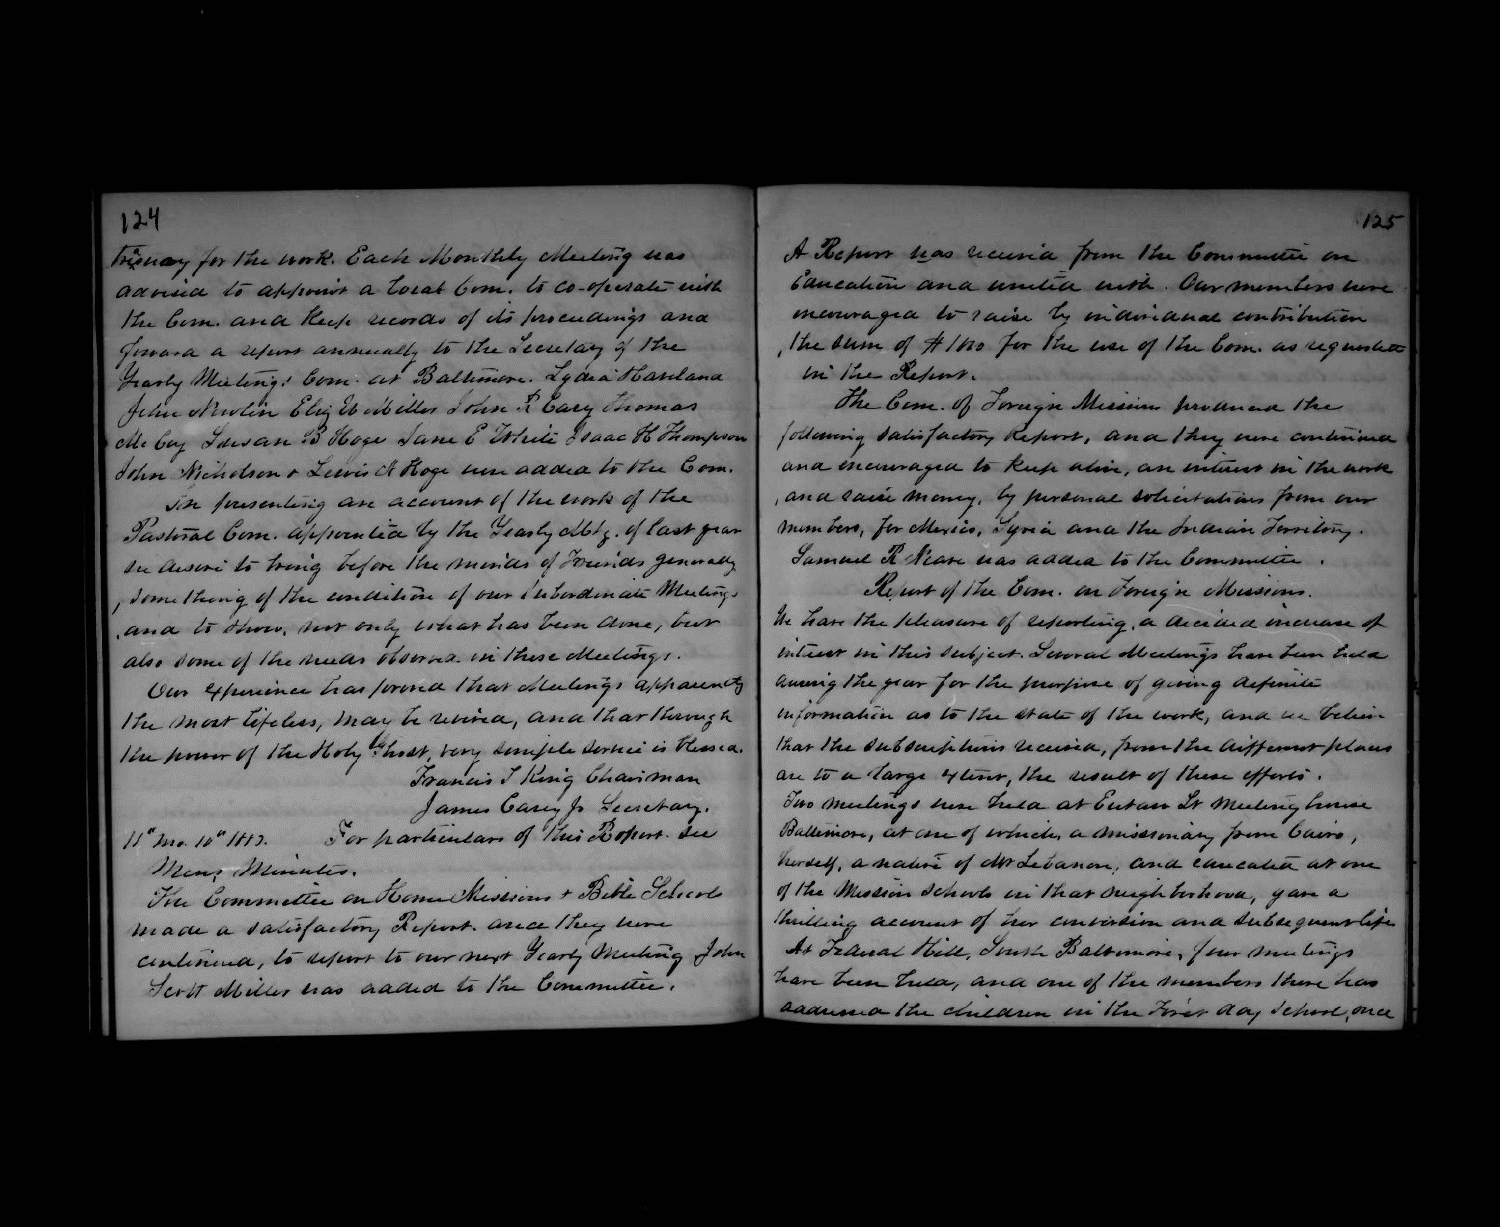 124
Treasury for the work. Each Monthly Meeting was
advised to appoint a local Com. to co-operate with
the Com. and keep records of its proceedings and
forward a report annually to the Secretary of the
Yearly Meetings Com. at Baltimore. Lydia Haviland
John Newlin Eliz W Miller John R Cary Thomas
McCoy Susan B Hoge Jane E White Isaac H Thompson
John Nicholson & Lewis N Hoge were added to the Com.
In presenting an account of the work of the
Pastoral Com. appointed by the Yearly Mtg. of last year
we desire to bring before the minds of Friends generally
, something of the condition of our Subordinate Meetings
, and to show, not only what has been done, but
also some of the needs observed in these Meetings.
Our experience has proved that Meetings apparently
the most lifeless, may be revived, and that through
the power of the Holy Ghost, very simple service is blessed.
Francis T King Chairman
James Carey Jr Secretary.
11" mo. 10" For particulars of this Report see
Mens Minutes.
The Committee on Home Missions & Bible Schools
made a satisfactory Report. and they were
continued, to report to our next Yearly Meeting John
Scott Miller was added to the Committee.
125
A Report was received from the Committee on
Education and united with. Our members were
encouraged to raise by individual contribution
, the sum of for the use of the Com. as requested
in the Report.
The Com. of Foreign Missions produced the
following satisfactory Report, and they were continued
and encouraged to keep alive, an interest in the work
, and raise money, by personal solicitations from our
members, for Mexico, Syria and the Indian Territory.
Samuel R Neave was added to the Committee.
Report of the Com. on Foreign Missions.
We have the pleasure of reporting, a decided increase of
interest in this subject. Several Meetings have been held
during the year for the purpose of giving definite
information as to the state of the work, and we believe
that the subscriptions received, from the different places
are to a large extent, the result of these efforts.
Two meetings were held at Eutaw St Meeting house
Baltimore, at one of which, a missionary from Cairo,
herself, a native of Mt Lebanon, and educated at one
of the Mission schools in that neighborhood, gave a
thrilling account of her conversion and subsequent life
At Federal Hill, South Baltimore, four meetings
have been held, and one of the members there has
addressed the children in the First day School, once